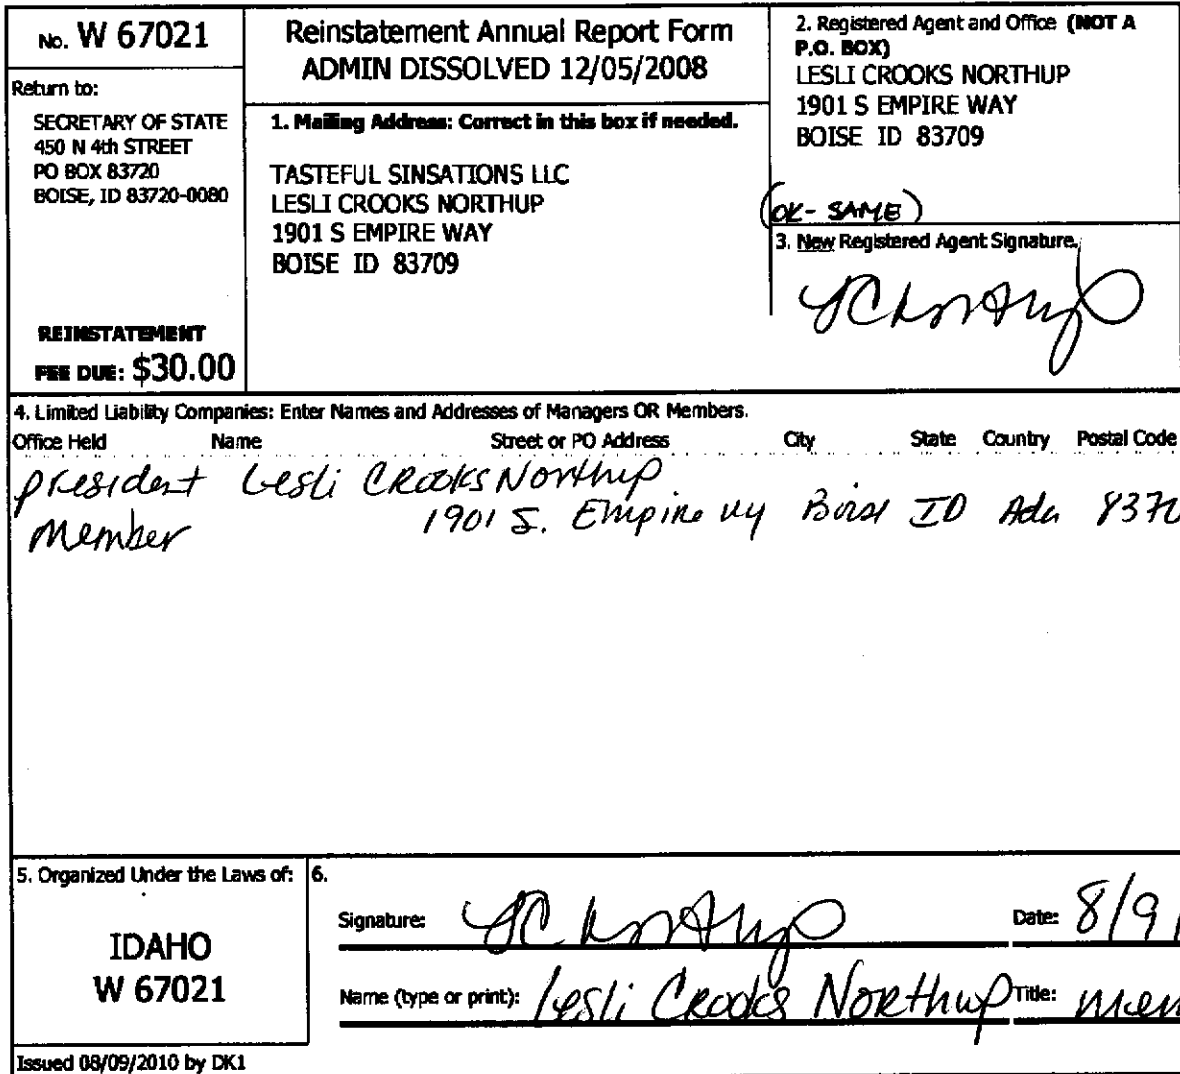 No. W 67021
Return to:
SECRETARY OF STATE
450 N 4th STREET
PO BOX 83720
BOISE, ID 83720-0080
REINSTATEMENT
FEE DUE: $30.00
Reinstatement Annual Report Form
ADMIN DISSOLVED 12/05/2008
1. Mailing Address: Correct in this box if needed.
TASTEFUL SINSATIONS LLC
LESLI CROOKS NORTHUP
1901 S EMPIRE WAY
BOISE ID 83709
2. Registered Agent and Office (NOT A
P.O. BOX)
LESLI CROOKS NORTHUP
1901 S EMPIRE WAY
BOISE ID 83709
(OK - SAME)
3. New Registered Agent Signature.
4. Limited Liability Companies: Enter Names and Addresses of Managers OR Members.
Office Held Name Street or PO Address City State Country Postal Code
president Lesli Crooks Northup
member 1901 S. Empire Wy Boise ID Ada 8370
5. Organized Under the Laws of:
IDAHO
W 67021
6.
Signature: Date: 8/9/
Name (type or print): Lesli Crooks Northup Title: mem
Issued 08/09/2010 by DK1